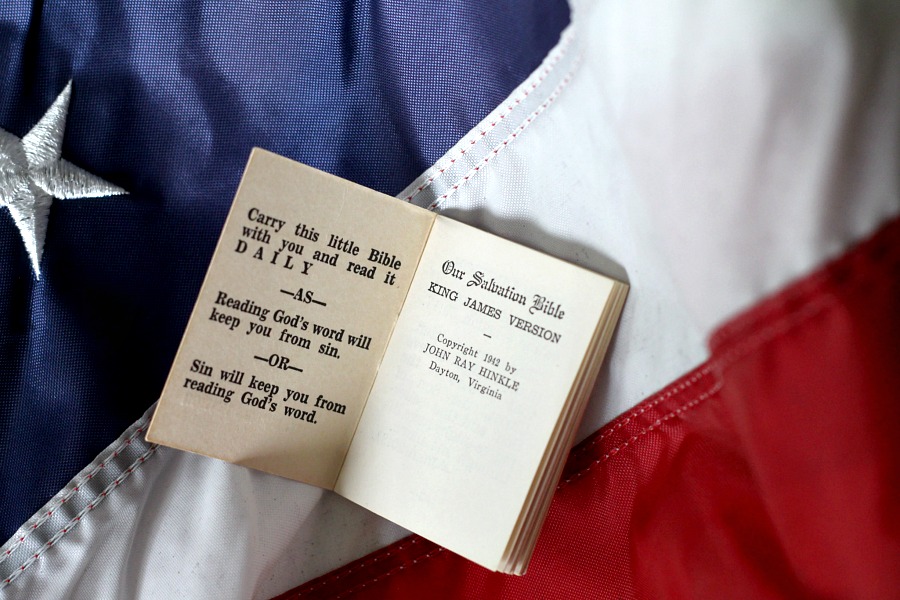 Carry this little Bible
with you and read it
DAILY
—AS—
Reading God's word will
keep you from sin.
—OR—
Sin will keep you from
reading God's word.
Our Salvation Bible
KING JAMES VERSION
—
Copyright 1942 by
JOHN RAY HINKLE
Dayton, Virginia